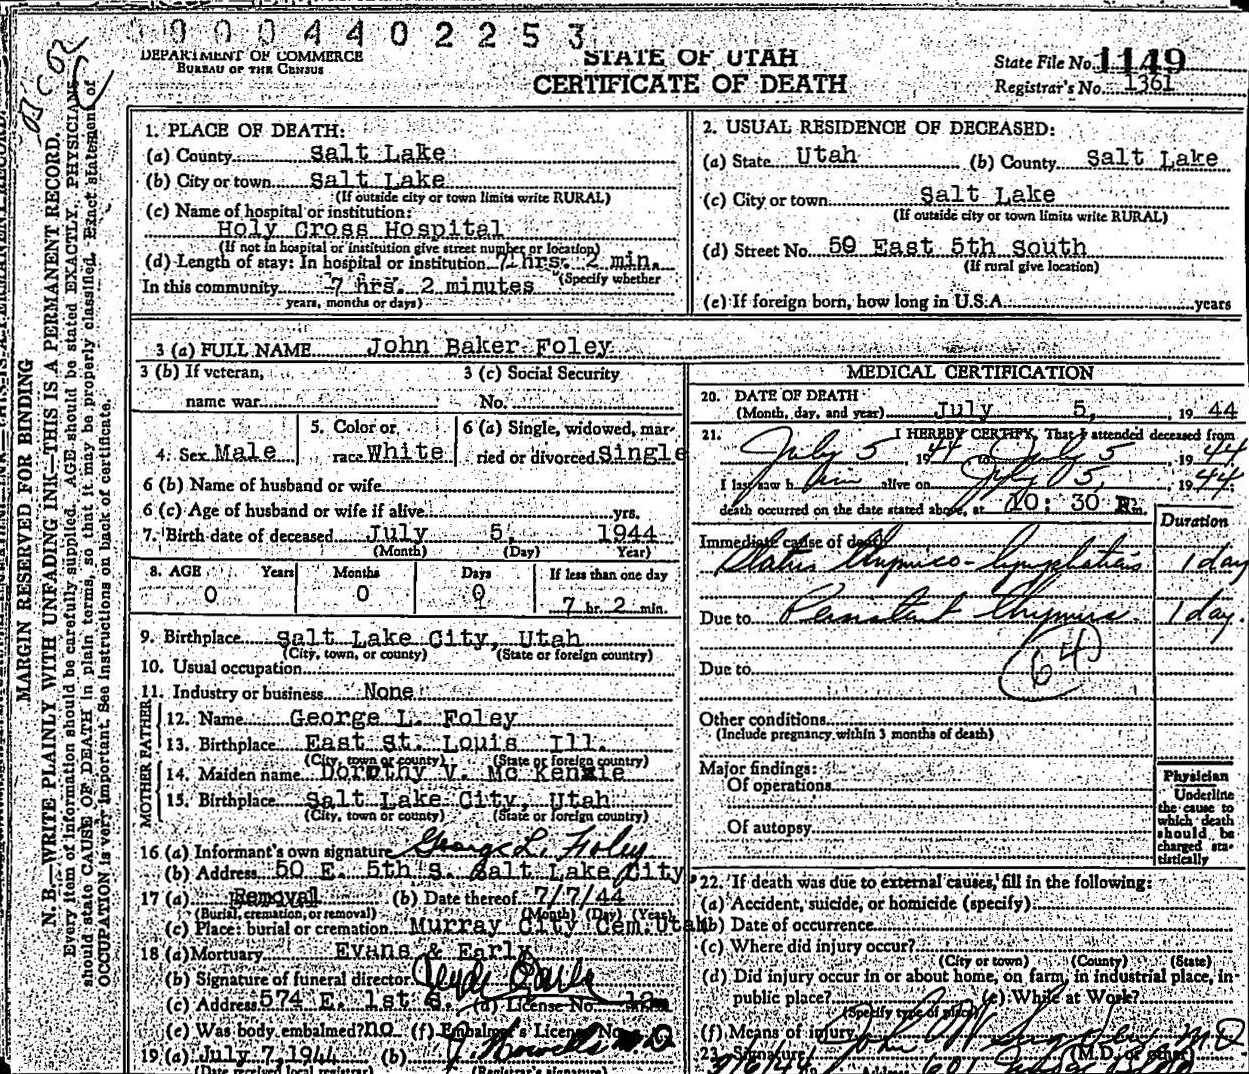 0 0 0 4 4 0 2 2 5 3
DEPARTMENT OF COMMERCE
BUREAU OF THE CENSUS
STATE OF UTAH
CERTIFICATE OF DEATH
State File No. 1149
Registrar's No. 1361
MARGIN RESERVED FOR BINDING
N. B.—WRITE PLAINLY WITH UNFADING INK—THIS IS A PERMANENT RECORD.
Every item of information should be carefully supplied. AGE should be stated EXACTLY, PHYSICIANS
should state CAUSE OF DEATH in plain terms, so that it may be properly classified. Exact statement of
OCCUPATION is very important. See instructions on back of certificate.
1. PLACE OF DEATH:
(a) County Salt Lake
(b) City or town Salt Lake
(If outside city or town limits write RURAL)
(c) Name of hospital or institution:
Holy Cross Hospital
(If not in hospital or institution give street number or location)
(d) Length of stay: In hospital or institution 7 hrs. 2 min.
(Specify whether
In this community 7 hrs. 2 minutes
years, months or days)
2. USUAL RESIDENCE OF DECEASED:
(a) State Utah (b) County Salt Lake
(c) City or town Salt Lake
(If outside city or town limits write RURAL)
(d) Street No. 50 East 5th South
(If rural give location)
(e) If foreign born, how long in U.S.A. years
3 (a) FULL NAME John Baker Foley
3 (b) If veteran, 3 (c) Social Security
name war No.
4. Sex Male 5. Color or race White 6 (a) Single, widowed, married or divorced Single
6 (b) Name of husband or wife
6 (c) Age of husband or wife if alive yrs.
7. Birth date of deceased July 5, 1944
(Month) (Day) Year)
8. AGE Years Months Days If less than one day
0 0 0 7 hr. 2 min.
9. Birthplace Salt Lake City, Utah
(City, town, or county) (State or foreign country)
10. Usual occupation
11. Industry or business None
FATHER
12. Name George L. Foley
13. Birthplace East St. Louis Ill.
(City, town or county) (State or foreign country)
MOTHER
14. Maiden name Dorothy V. Mc Kenzie
15. Birthplace Salt Lake City, Utah
(City, town or county) (State or foreign country)
16 (a) Informant's own signature George L. Foley
(b) Address 50 E. 5th S. Salt Lake City
17 (a) Removal (b) Date thereof 7/7/44
(Burial, cremation, or removal) (Month) (Day) (Year)
(c) Place: burial or cremation Murray City Cem. Utah
18 (a) Mortuary Evans & Early
(b) Signature of funeral director
(c) Address 574 E. 1st S. (d) License No.
(e) Was body embalmed? no (f) Embalmer's License No.
19 (a) July 7, 1944 (b)
(Date received local registrar) (Registrar's signature)
MEDICAL CERTIFICATION
20. DATE OF DEATH
(Month, day, and year) July 5, , 19 44
21. I HEREBY CERTIFY, That I attended deceased from
July 5, 1944, to July 5, 1944
I last saw him alive on July 5, 1944
death occurred on the date stated above, at 10:30 P.m.
Duration
Immediate cause of death
Status thymico-lymphaticus 1 day
Due to Persistent thymus. 1 day.
Due to
64
Other conditions
(Include pregnancy within 3 months of death)
Major findings:
Of operations
Of autopsy
Physician
Underline
the cause to
which death
should be
charged sta-
tistically
22. If death was due to external causes, fill in the following:
(a) Accident, suicide, or homicide (specify)
(b) Date of occurrence
(c) Where did injury occur?
(City or town) (County) (State)
(d) Did injury occur in or about home, on farm, in industrial place, in
public place? (e) While at Work?
(Specify type of place)
(f) Means of injury
23. Signature John M.D.
(M.D. or other)